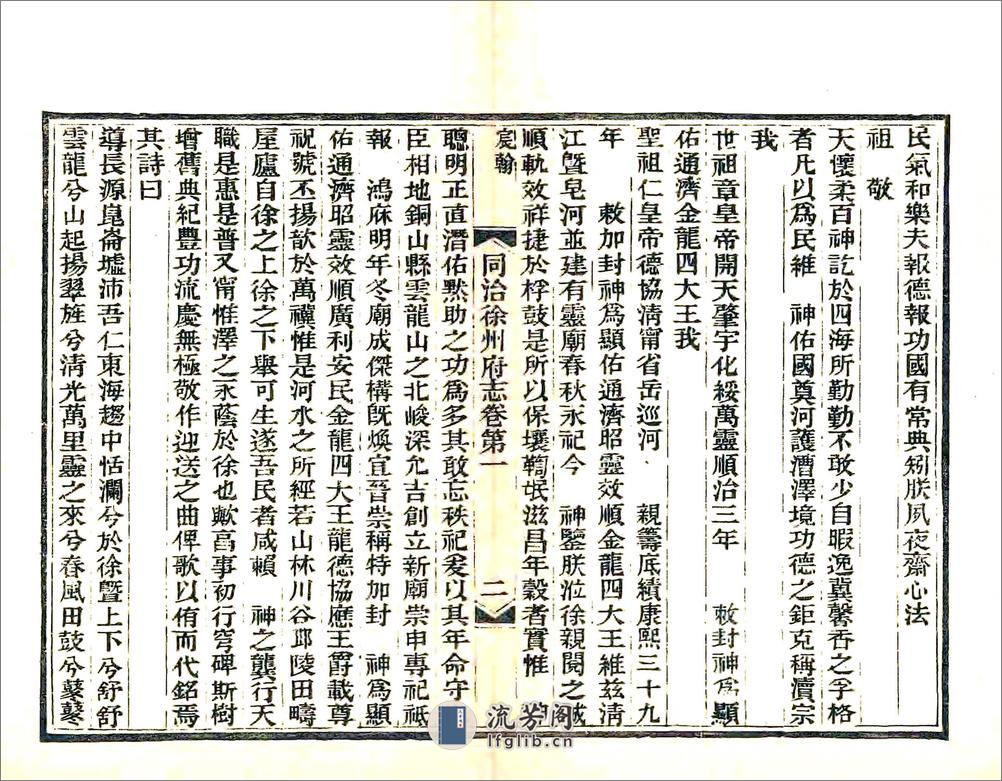 民氣和樂夫報德報功國有常典矧朕夙夜齋心法
祖　敬
天懷柔百神訖於四海所勤勤不敢少自暇逸冀馨香之孚格
者凡以爲民維　神佑國奠河護漕澤境功德之鉅克稱瀆宗
我
世祖章皇帝開天肇宇化綏萬靈順治三年　敕封神爲顯
佑通濟金龍四大王我
聖祖仁皇帝德協淸甯省岳巡河　親籌底績康熙三十九
年　敕加封神爲顯佑通濟昭靈效順金龍四大王維兹淸
江曁皂河並建有靈廟春秋永祀今　神鑒朕涖徐親閱之誠
順軌效祥捷於桴鼓是所以保壤鞫氓滋昌年穀者實惟
宸翰
同治徐州府志卷第一
二
聰明正直潛佑默助之功爲多其敢忘秩祀爰以其年命守
臣相地銅山縣雲龍山之北峻深允吉創立新廟崇申專祀祗
報　鴻庥明年冬廟成傑構旣煥宜晉崇稱特加封　神爲顯
佑通濟昭靈效順廣利安民金龍四大王龍德協應王爵載尊
祝號丕揚歆於萬禩惟是河水之所經若山林川谷邱陵田疇
屋廬自徐之上徐之下舉可生遂吾民者咸賴　神之龔行天
職是惠是普又甯惟澤之永蔭於徐也歟㫖事初行穹碑斯樹
增舊典紀豐功流慶無極敬作迎送之曲俾歌以侑而代銘焉
其詩曰
導長源崑崙墟沛吾仁東海趨中恬瀾兮於徐曁上下兮舒舒
雲龍兮山起揚翠旌兮淸光萬里靈之來兮春風田鼓兮鼕鼕
流芳阁
lfglib.cn